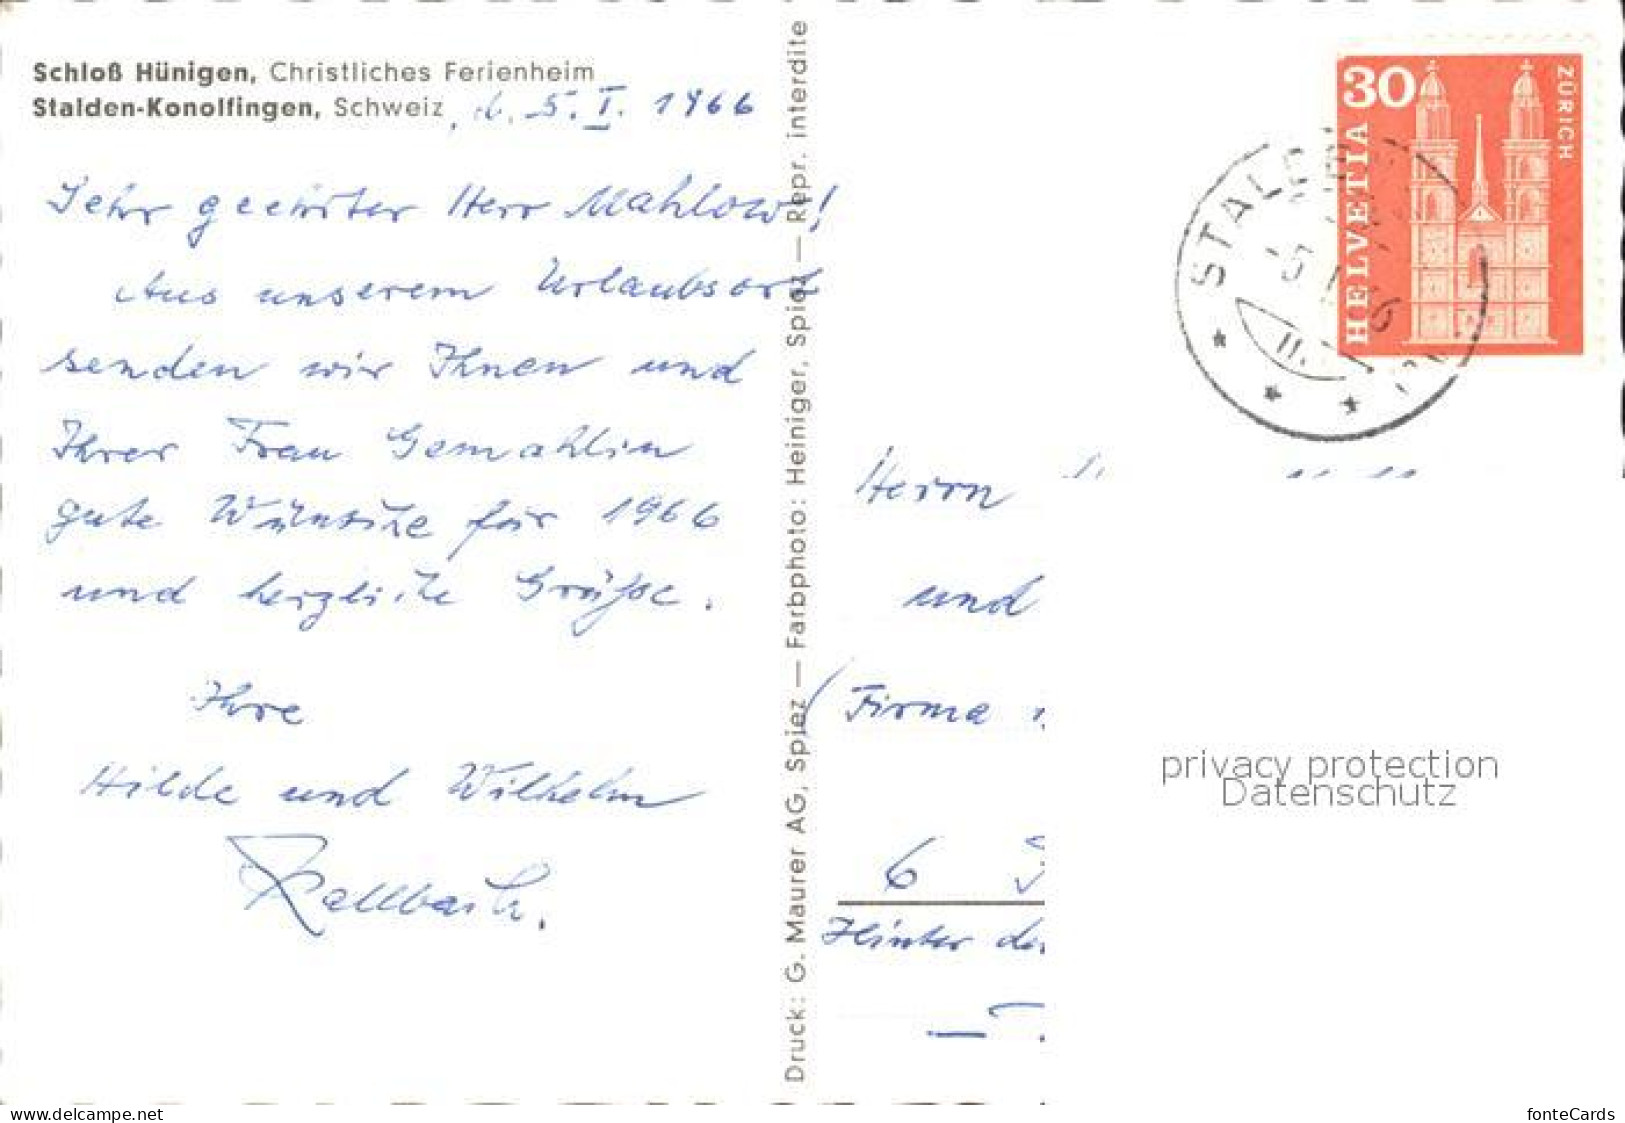 Schloß Hünigen, Christliches Ferienheim
Stalden-Konolfingen, Schweiz, d. 5. I. 1966
Sehr geehrter Herr Mahlow!
Aus unserem Urlaubsort
senden wir Ihnen und
Ihrer Frau Gemahlin
gute Wünsche für 1966
und herzliche Grüße.
Ihre
Hilde und Wilhelm
Kallbach.
Druck: G. Maurer AG, Spiez — Farbphoto: Heiniger, Spiez — Repr. interdite
30
HELVETIA
ZÜRICH
STALDEN
Herrn
und
(Firma
6
Hinter
privacy protection
Datenschutz
www.delcampe.net
fonteCards